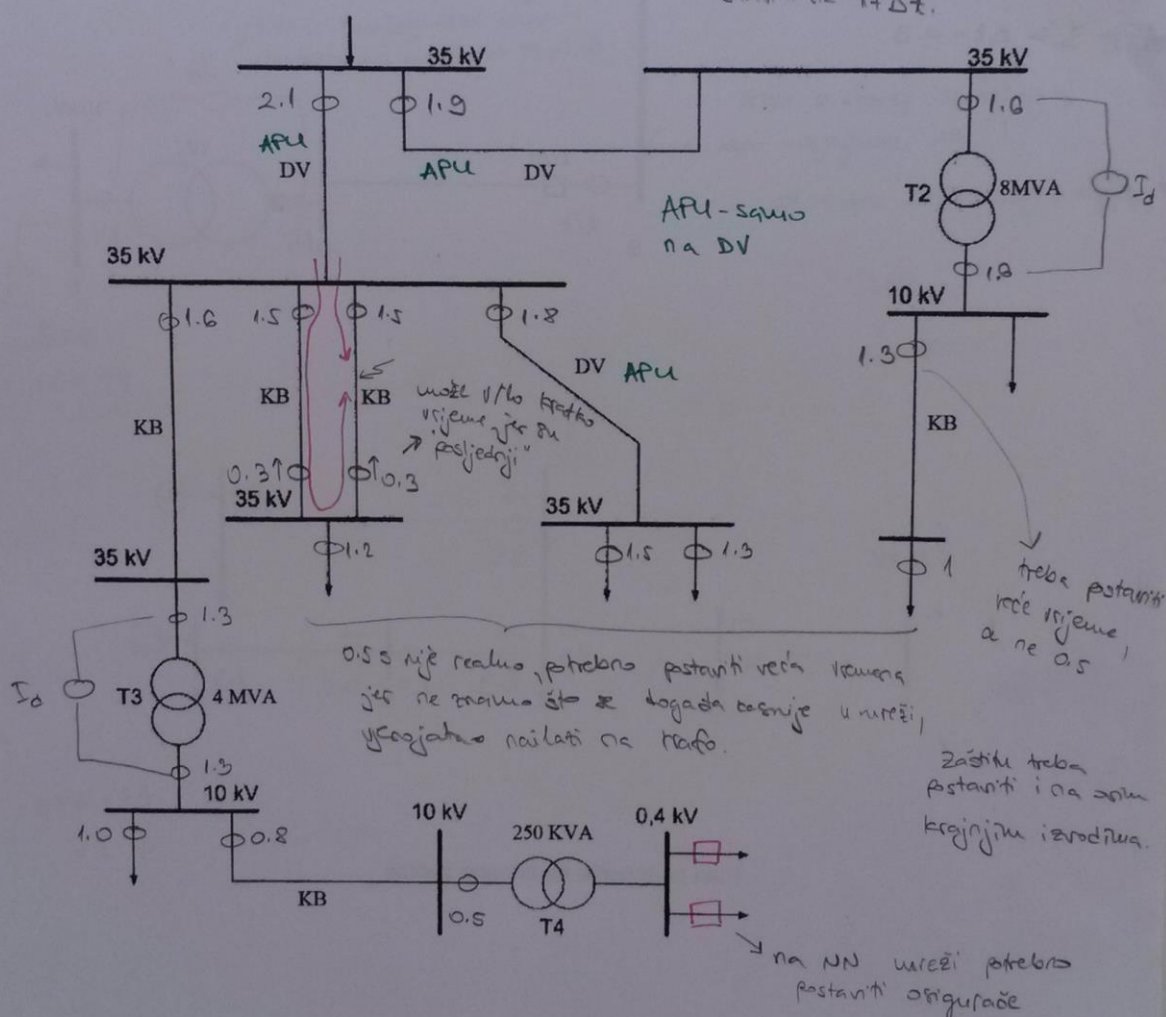 Δt.
35 kV
35 kV
2.1
1.9
1.6
APU
DV
APU
DV
T2
8MVA
Id
APU-samo
na DV
1.8
35 kV
10 kV
1.6
1.5
1.5
1.8
1.3
DV
APU
KB
KB
KB
KB
može vrlo kratko
vrijeme jer su
"posljednji"
0.3
0.3
35 kV
35 kV
1.2
1.5
1.3
1
treba postaviti
veće vrijeme,
a ne 0.5
35 kV
1.3
0.5 s nije realno, potrebno postaviti veća vremena
jer ne znamo što se događa kasnije u mreži,
vjerojatno nailazi na trafo.
Id
T3
4 MVA
1.3
10 kV
zaštitu treba
postaviti i na ovim
krajnjim izvodima.
1.0
0.8
10 kV
250 KVA
0,4 kV
KB
0.5
T4
na NN mreži potrebno
postaviti osigurače